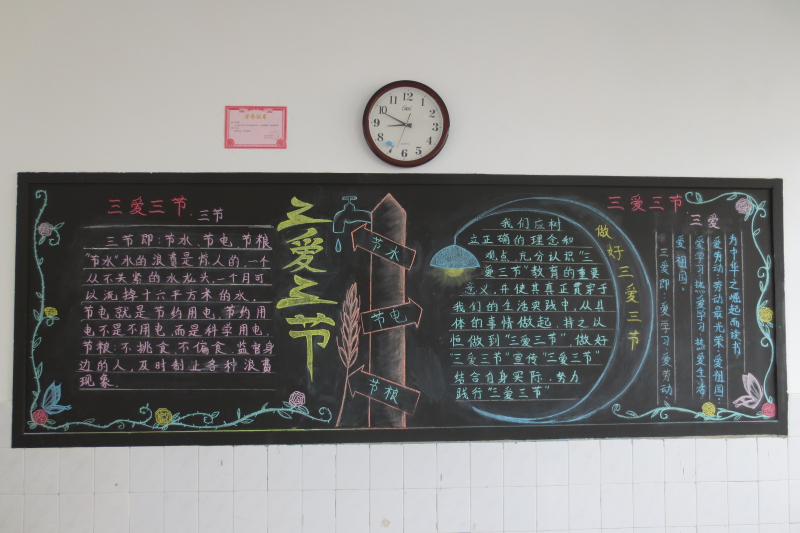 三爱三节
三节
三节即:节水、节电、节粮
"节水"水的浪费是惊人的,一个
从不关紧的水龙头,一个月可
以流掉十六平方米的水,
节电就是节约用电,节约用
电不是不用电,而是科学用电,
节粮:不挑食、不偏食、监督身
边的人,及时制止各种浪费
现象.
三爱三节
节水
节电
节粮
我们应树
立正确的理念和
观点,充分认识"三
爱三节"教育的重要
意义,并使其真正贯穿于
我们的生活实践中,从具
体的事情做起,持之以
恒做到"三爱三节",做好
"三爱三节"宣传"三爱三节"
结合自身实际,努力
践行"三爱三节"
做好三爱三节
三爱三节
三爱
为中华之崛起而读书
爱劳动:劳动最光荣、爱祖国:
爱学习:热爱学习 热爱生活
爱祖国.
三爱即:爱学习、爱劳动、
12
1
2
3
4
5
6
8
9
10
11